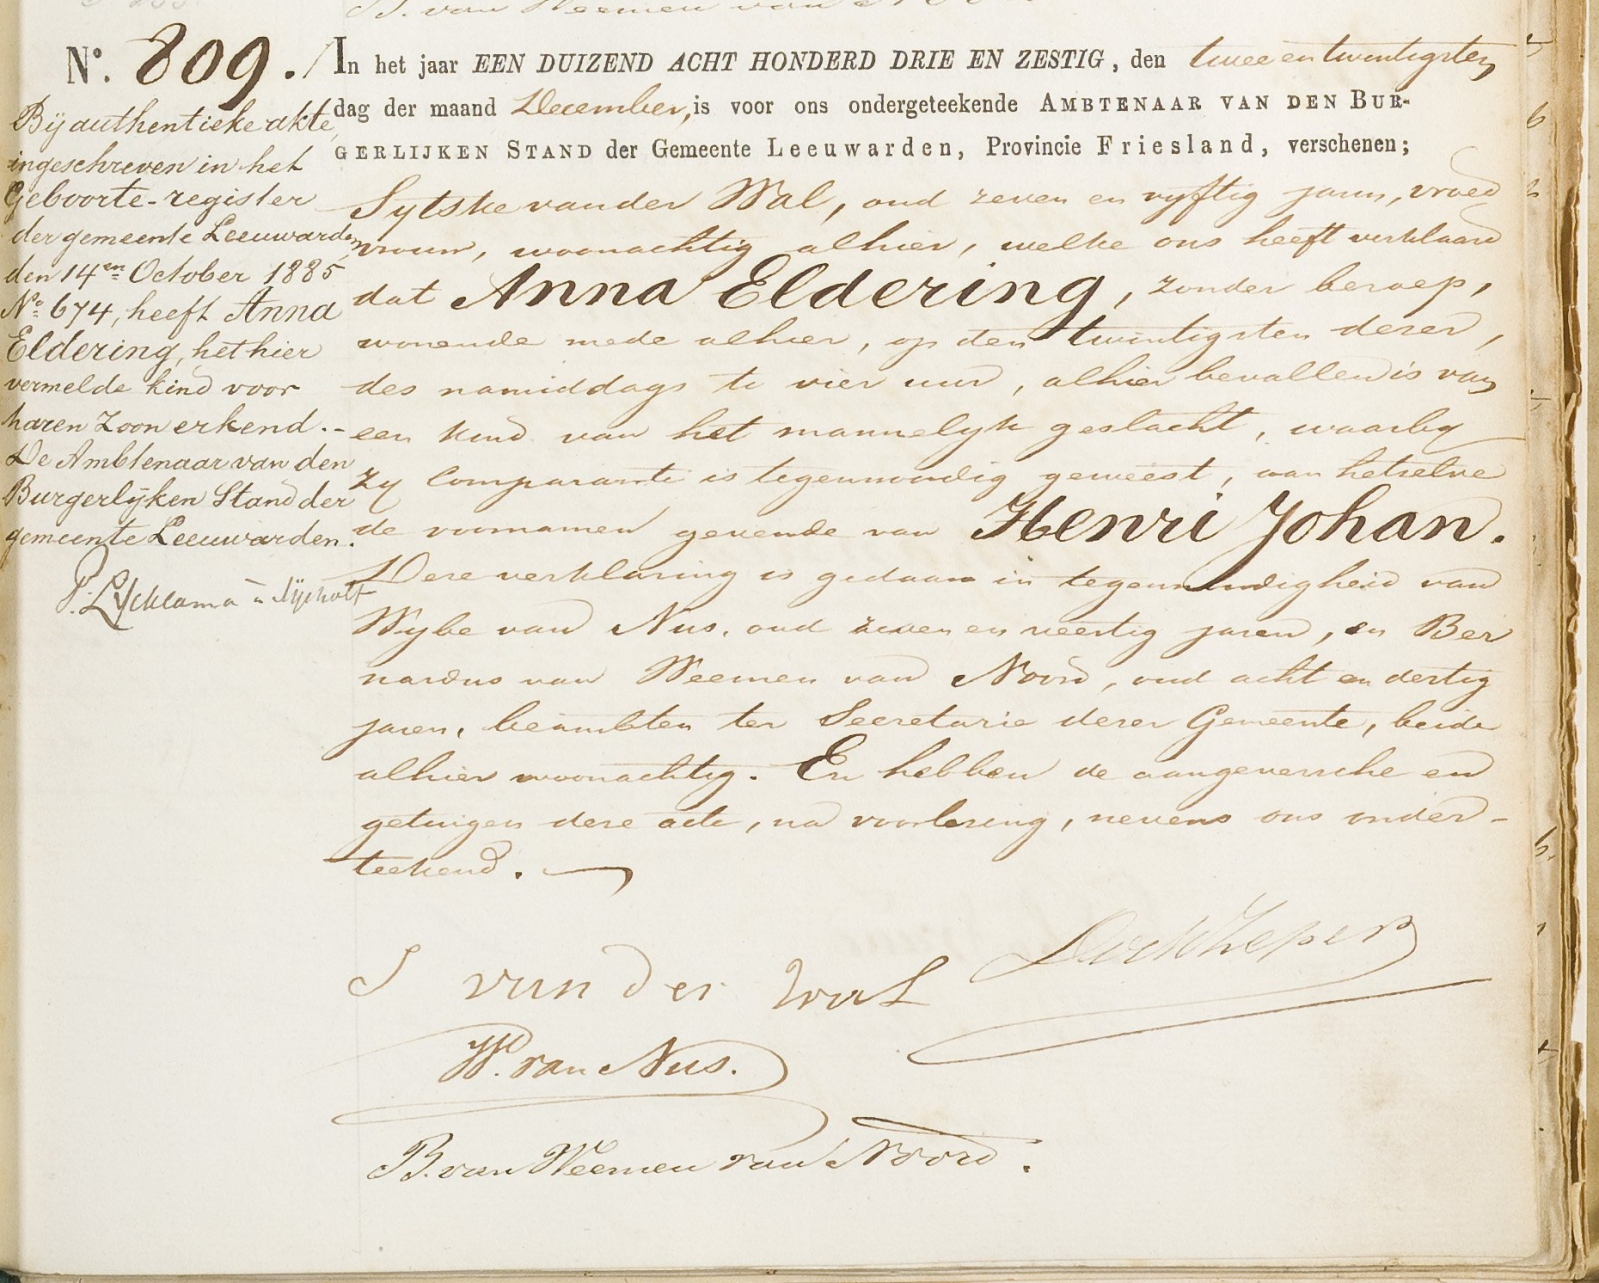 B. van Weemen van Noord
No. 809.
In het jaar EEN DUIZEND ACHT HONDERD DRIE EN ZESTIG, den twee en twintigsten
dag der maand December, is voor ons ondergeteekende AMBTENAAR VAN DEN BUR-
GERLIJKEN STAND der Gemeente Leeuwarden, Provincie Friesland, verschenen;
Sytske van der Wal, oud zeven en vyftig jaren, vroed
vrouw, woonachtig alhier, welke ons heeft verklaard
dat Anna Eldering, zonder beroep,
wonende mede alhier, op den twintigsten dezer,
des namiddags te vier uur, alhier bevallen is van
een kind van het mannelyk geslacht, waarby
zy Comparante is tegenwoordig geweest, aan hetzelve
de voornamen gevende van Henri Johan.
Deze verklaring is gedaan in tegenwoordigheid van
Wybe van Nus, oud zeven en veertig jaren, en Ber
nardus van Weemen van Noord, oud acht en dertig
jaren, beambten ter Secretarie dezer Gemeente, beide
alhier woonachtig. En hebben de aangeversche en
getuigen deze acte, na voorlezing, nevens ons onder-
teekend.
Bij authentieke akte,
ingeschreven in het
Geboorte-register
der gemeente Leeuwarden
den 14en October 1885
No 674, heeft Anna
Eldering, het hier
vermelde kind voor
haren Zoon erkend.-
De Ambtenaar van den
Burgerlijken Stand der
gemeente Leeuwarden.
P. Lycklama à Nijeholt
S van der Wal
W. van Nus.
B. van Weemen van Noord.